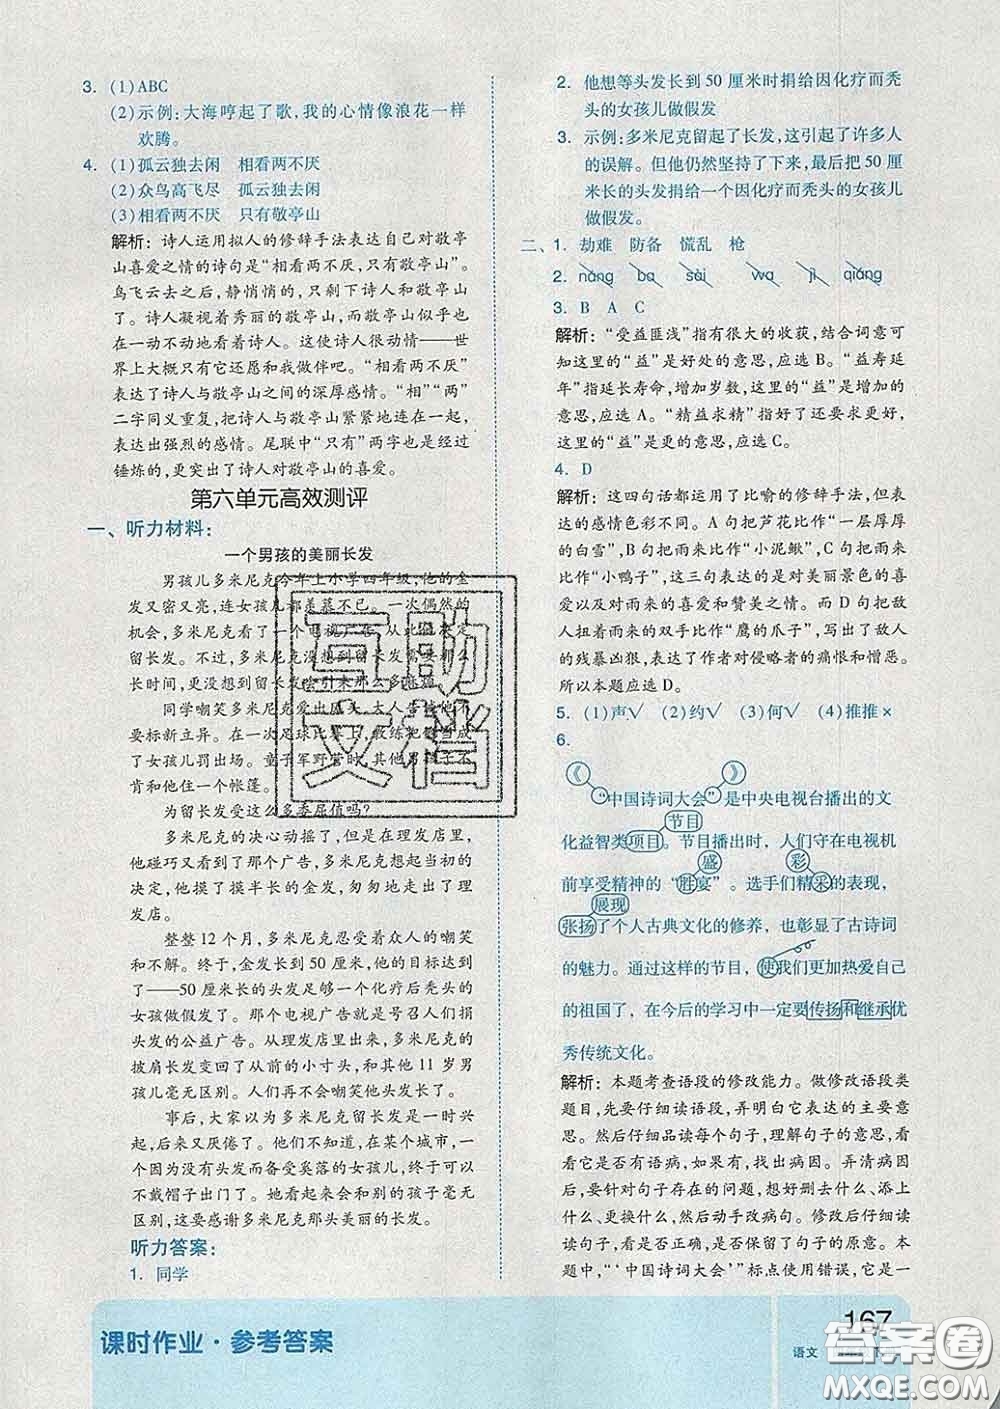 3. (1)ABC
(2)示例:大海哼起了歌,我的心情像浪花一样
欢腾。
4. (1)孤云独去闲 相看两不厌
(2)众鸟高飞尽 孤云独去闲
(3)相看两不厌 只有敬亭山
解析:诗人运用拟人的修辞手法表达自己对敬亭
山喜爱之情的诗句是“相看两不厌,只有敬亭山”。
鸟飞云去之后,静悄悄的,只剩下诗人和敬亭山
了。诗人凝视着秀丽的敬亭山,而敬亭山似乎也
在一动不动地看着诗人。这使诗人很动情——世
界上大概只有它还愿和我做伴吧。“相看两不厌”
表达了诗人与敬亭山之间的深厚感情。“相”“两”
二字同义重复,把诗人与敬亭山紧紧地连在一起,
表达出强烈的感情。尾联中“只有”两字也是经过
锤炼的,更突出了诗人对敬亭山的喜爱。
第六单元高效测评
一、听力材料:
一个男孩的美丽长发
男孩儿多米尼克今年上小学四年级,他的金
发又密又亮,连女孩儿都羡慕不已。一次偶然的
机会,多米尼克看了一个电视广告,从此他决定
留长发。不过,多米尼克没想到留长发需要那么
长时间,更没想到留长发会引来那么多麻烦。
同学嘲笑多米尼克出风头,大人告诫他不要
要标新立异。在一次足球比赛上,教练把他当成
了女孩儿罚出场。童子军野营时,其他男孩儿不
肯和他住一个帐篷。
为留长发受这么多委屈值吗?
多米尼克的决心动摇了,但是在理发店里,
他碰巧又看到了那个广告,多米尼克想起当初的
决定,他摸了摸半长的金发,匆匆地走出了理
发店。
整整 12 个月,多米尼克忍受着众人的嘲笑
和不解。终于,金发长到 50 厘米,他的目标达到
了——50 厘米长的头发足够一个化疗后秃头的
女孩做假发了。那个电视广告就是号召人们捐
头发的公益广告。从理发店里出来,多米尼克的
披肩长发变回了从前的小寸头,和其他 11 岁男
孩儿毫无区别。人们再不会嘲笑他头发长了。
事后,大家以为多米尼克留长发是一时兴
起,后来又厌倦了。他们不知道,在某个城市,
一个因为没有头发而备受奚落的女孩儿,终于可
以不戴帽子出门了。她看起来会和别的孩子毫无
区别,这要感谢多米尼克那头美丽的长发。
听力答案:
1. 同学
2. 他想等头发长到 50 厘米时捐给因化疗而秃
头的女孩儿做假发
3. 示例:多米尼克留起了长发,这引起了许多人
的误解。但他仍然坚持了下来,最后把 50 厘
米长的头发捐给一个因化疗而秃头的女孩儿
做假发。
二、1. 劫难 防备 慌乱 枪
2. náng ba sài wa jì qiáng
3. B A C
解析:“受益匪浅”指有很大的收获,结合词意可
知这里的“益”是好处的意思,应选 B。“益寿延
年”指延长寿命,增加岁数,这里的“益”是增加的
意思,应选 A。“精益求精”指好了还要求更好,
这里的“益”是更的意思,应选 C。
4. D
解析:这四句话都运用了比喻的修辞手法,但表
达的感情色彩不同。A 句把芦花比作“一层厚厚
的白雪”,B 句把雨来比作“小泥鳅”,C 句把雨来
比作“小鸭子”,这三句表达的是对美丽景色的喜
爱以及对雨来的喜爱和赞美之情。而 D 句把敌
人扭着雨来的双手比作“鹰的爪子”,写出了敌人
的残暴凶狠,表达了作者对侵略者的痛恨和憎恶。
所以本题应选 D。
5. (1)声√ (2)约√ (3)何√ (4)推推×
6.
《 》
“中国诗词大会”是中央电视台播出的文
节目
化益智类项目。节目播出时,人们守在电视机
盛 彩
前享受精神的“胜宴”。选手们精采的表现,
展现
张扬了个人古典文化的修养,也彰显了古诗词
的魅力。通过这样的节目,使我们更加热爱自己
的祖国了,在今后的学习中一定要传扬和继承优
秀传统文化。
解析:本题考查语段的修改能力。做修改语段类
题目,先要仔细读语段,弄明白它表达的主要意
思。然后仔细品读每个句子,理解句子的意思,看
看是否有语病,如果有,找出病因。弄清病因
后,要针对句子存在的问题,想好删去什么、添上
什么、更换什么,然后动手改病句。修改后仔细读
读句子,看是否正确,是否保留了句子的原意。本
题中,“‘中国诗词大会’”标点使用错误,它是一
互助
文档
课时作业·参考答案
167
语文
答案圈
MXQE.COM